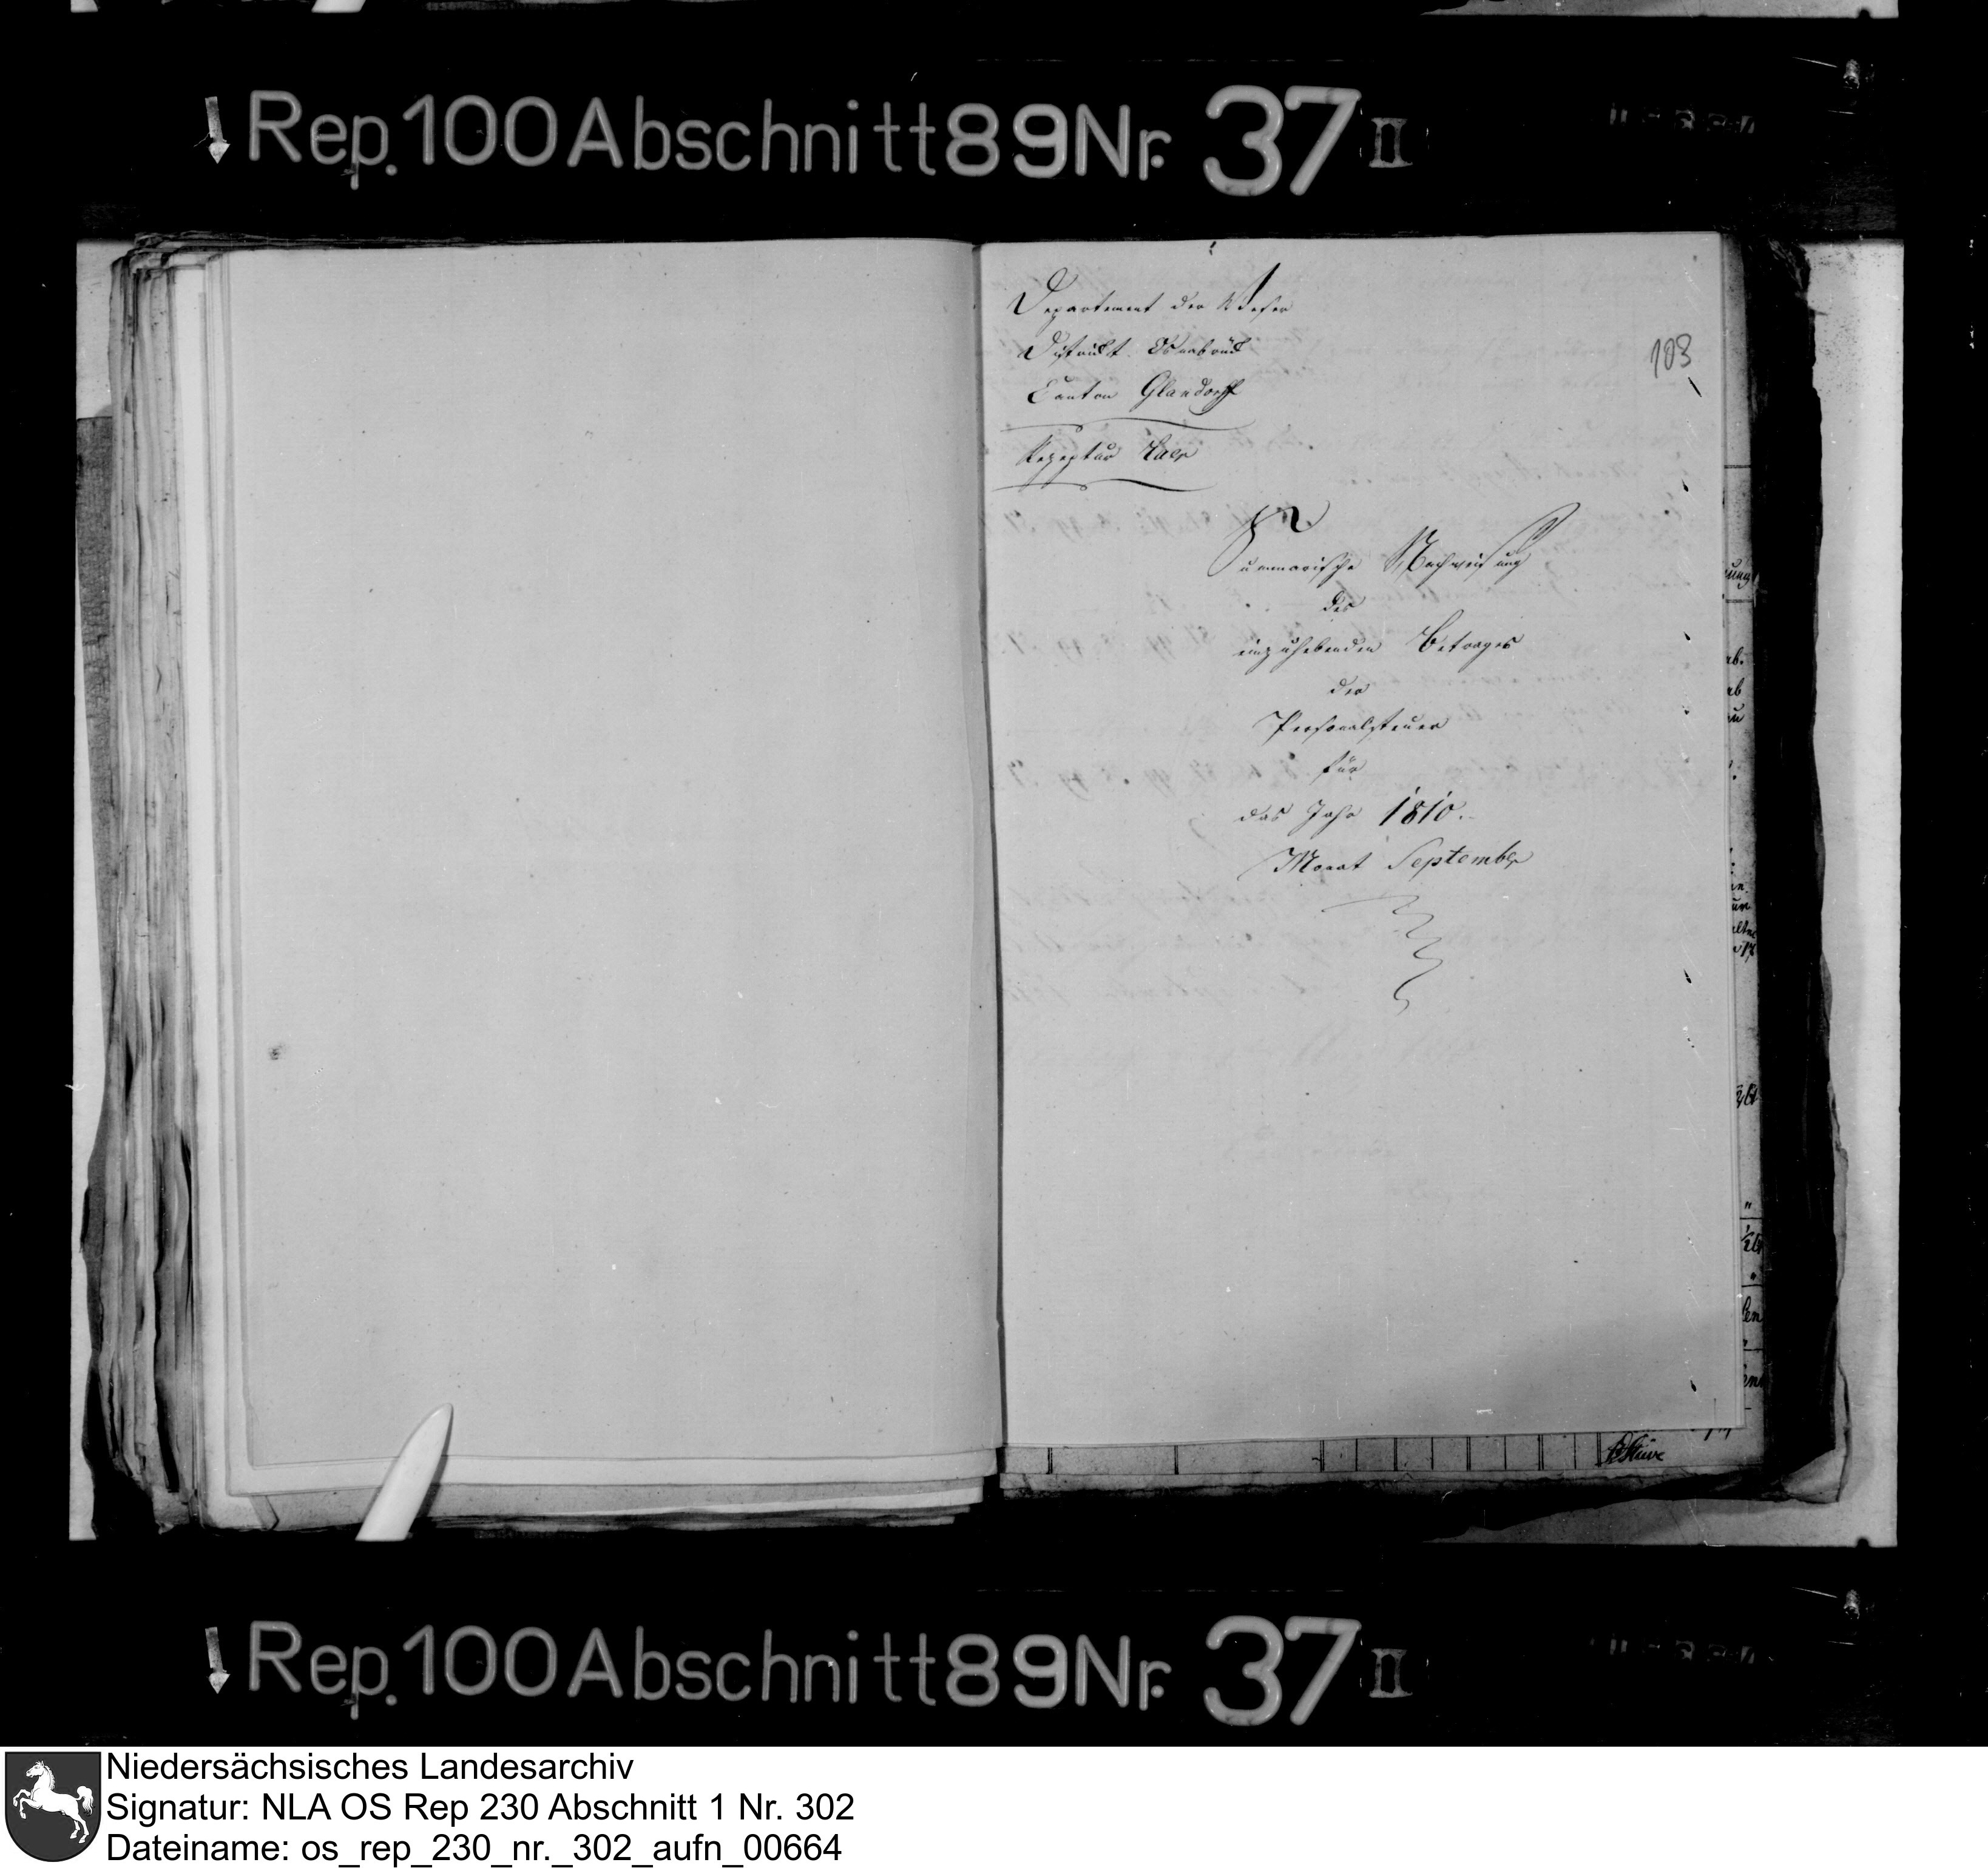 Rep. 100 Abschnitt 89 Nr. 37 II
Departement der Weser
District Osnabrück
Canton Glandorff
Rezeptur Laer
103
Summarische Nachweisung
des
einzuhebenden Betrages
der
Personalsteuer
für
das Jahr 1810.
Monat September
Rep. 100 Abschnitt 89 Nr. 37 II
Niedersächsisches Landesarchiv
Signatur: NLA OS Rep 230 Abschnitt 1 Nr. 302
Dateiname: os_rep_230_nr._302_aufn_00664